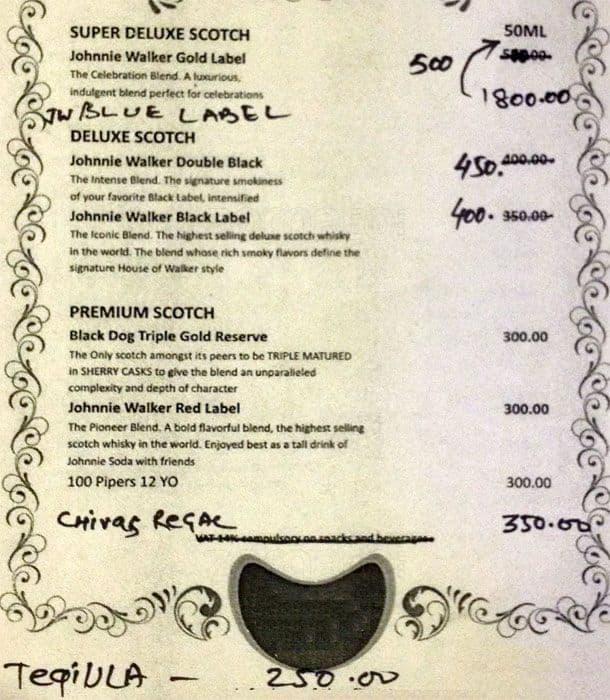 SUPER DELUXE SCOTCH 50ML
Johnnie Walker Gold Label 500
The Celebration Blend. A luxurious,
indulgent blend perfect for celebrations
JW BLUE LABEL 1800.00
DELUXE SCOTCH
Johnnie Walker Double Black 450. 400.00
The Intense Blend. The signature smokiness
of your favorite Black Label, intensified
Johnnie Walker Black Label 400. 350.00
The Iconic Blend. The highest selling deluxe scotch whisky
in the world. The blend whose rich smoky flavors define the
signature House of Walker style
PREMIUM SCOTCH
Black Dog Triple Gold Reserve 300.00
The Only scotch amongst its peers to be TRIPLE MATURED
in SHERRY CASKS to give the blend an unparalleled
complexity and depth of character
Johnnie Walker Red Label 300.00
The Pioneer Blend. A bold flavorful blend, the highest selling
scotch whisky in the world. Enjoyed best as a tall drink of
Johnnie Soda with friends
100 Pipers 12 YO 300.00
CHIVAS REGAL 350.00
VAT 14% compulsory on snacks and beverages
TEQIULA - 250.00